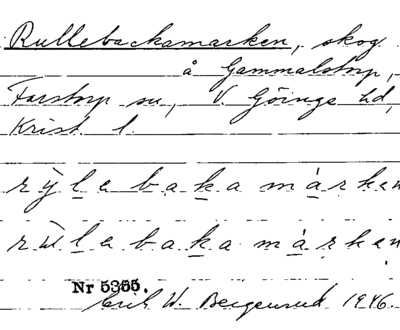 Rullebackamarken, skog
å Gammalstorp,
Farstorp sn, V. Göinge hd,
Krist. l.
rỳlebaka márken
rùlebaka márken
Nr 5365.
Erik W. 1946.